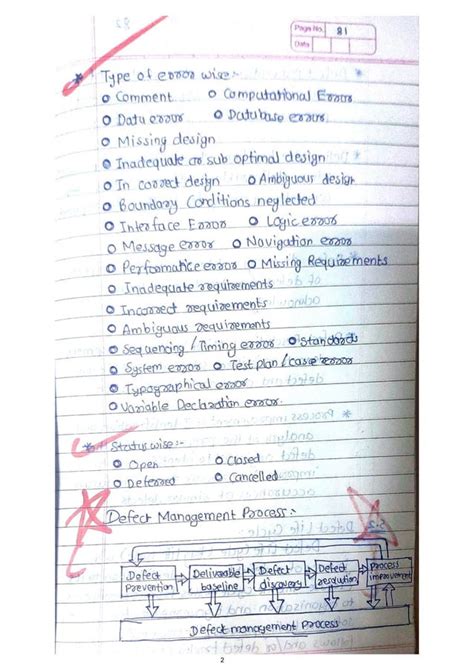 Page No. 81
Date
* Type of error wise:-
o Comment o Computational Error
o Data error o Database error
o Missing design
o Inadequate or sub optimal design
o In correct design o Ambiguous design
o Boundary Conditions neglected
o Interface Error o Logic error
o Message error o Navigation error
o Performance error o Missing Requirements
o Inadequate requirements
o Incorrect requirements
o Ambiguous requirements
o Sequencing / Timing error o Standards
o System error o Test plan / case error
o Typographical error
o Variable Declaration error.
* Status wise:-
o Open o Closed
o Deferred o Cancelled
Defect Management Process:-
Defect Prevention
Deliverable baseline
Defect discovery
Defect resolution
Process improvement
Defect management Process
2